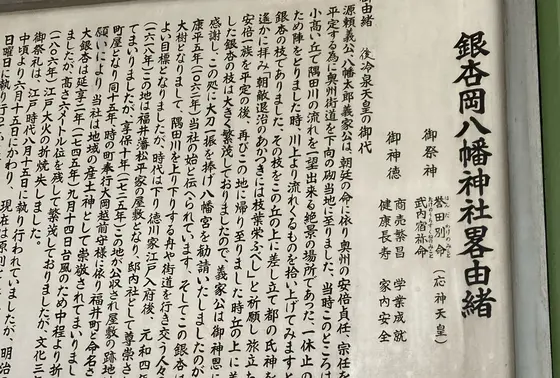 銀杏岡八幡神社畧由緒
御祭神 誉田別命(応神天皇)
武内宿祢命
御神徳 商売繁昌 学業成就
健康長寿 家内安全
御由緒 後冷泉天皇の御代
源頼義公、八幡太郎義家公は、朝廷の命に依り奥州の安倍貞任、宗任を
平定する為に奥州街道を下向の砌当地に至りました。当時このところは
小高い丘で隅田川の流れを一望出来る絶景の場所であった。一休止の
ため陣をとりました時、川上より流れくるものを拾い上げてみますと
銀杏の枝でありました。その枝をこの丘の上に差し立て都の氏神を
遥かに拝み、朝敵退治のあかつきには枝葉栄ふべし」と祈願し旅立た
安倍一族を平定の後、再びこの地に帰り至りました時丘の上に差
した銀杏の枝は大きく繁茂しておりましたので、義家公は御神恩に
感謝し、この処に太刀一振を捧げ八幡宮を勧請いたしましたのが
康平五年(一〇六二年)当社の始と伝へられています。そしてこの銀杏は
大樹となりまして、隅田川を上り下りする舟や街道を行き交う人々
よい目標となりましたが、時代は下り、徳川家江戸入府後、元和四年
(一六一八年)この地は福井藩松平家の屋敷となり、邸内社として尊崇さ
てまいりましたが、享保十年(一七二五年)この地が公収され屋敷の跡地
町屋となり同十五年、時の町奉行大岡越前守様に依り福井町と命名さ
願いにより当社は地域の産土神として崇敬されてまいりまし
大銀杏は延享二年(一七四五年)九月十四日台風のため中程より折
ましたが、高さ六メートル位を残して繁茂しておりましたが、文化三
(一八〇六年)江戸大火の折焼失しました。
御祭礼は、江戸時代八月十五日に執り行われていましたが、明治
中頃より六月十五日にかわり、現在は原則として
日曜日に執り行